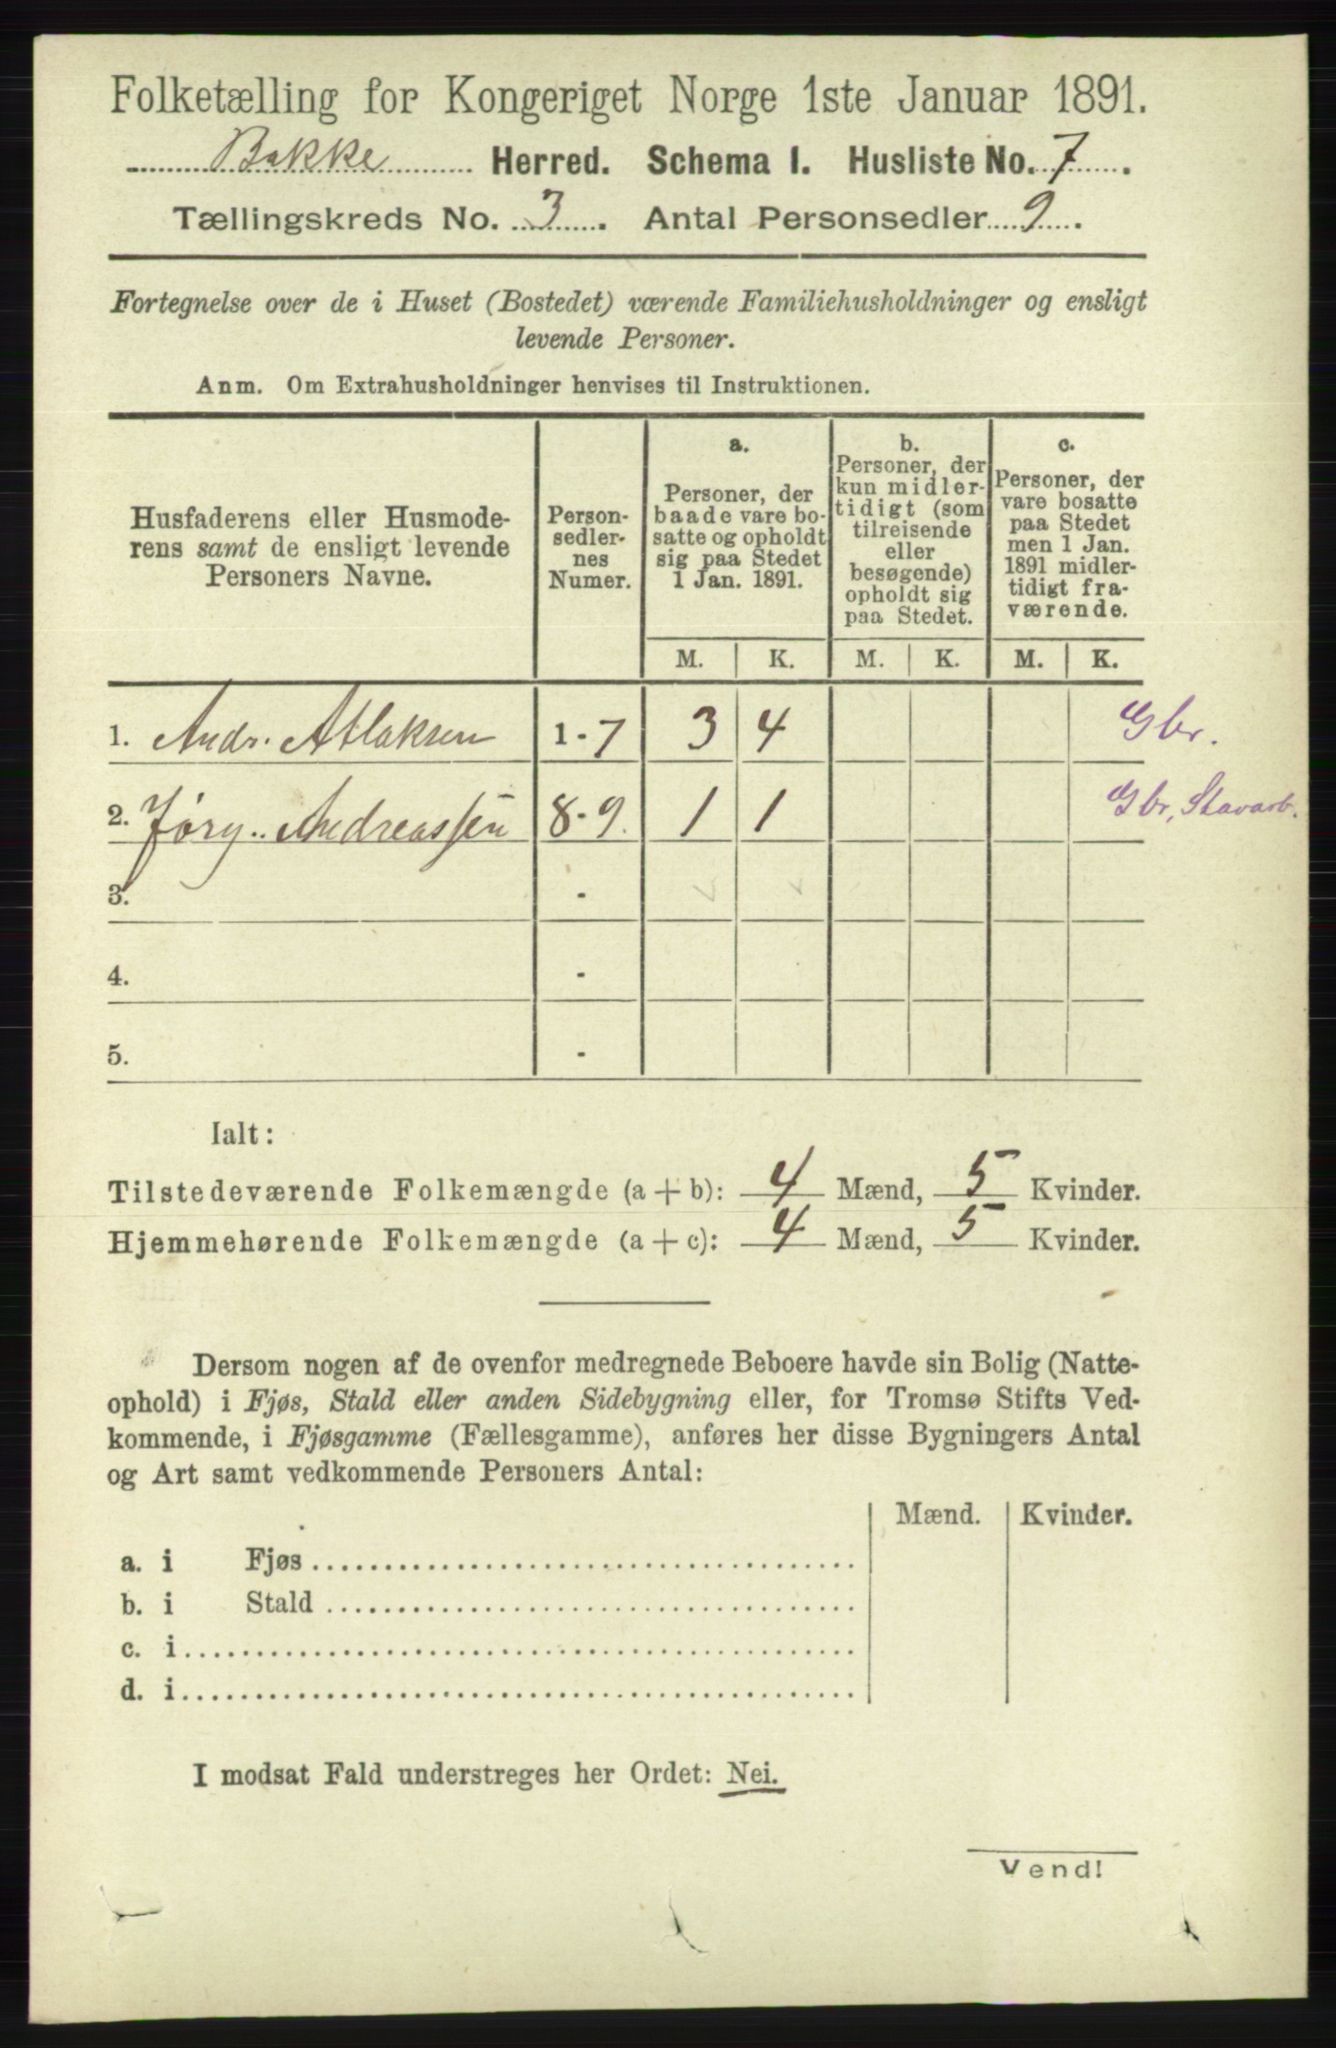 Folketælling for Kongeriget Norge 1ste Januar 1891.
Bakke Herred. Schema I. Husliste No. 7.
Tællingskreds No. 3. Antal Personsedler 9.
Fortegnelse over de i Huset (Bostedet) værende Familiehusholdninger og ensligt
levende Personer.
Anm. Om Extrahusholdninger henvises til Instruktionen.
Husfaderens eller Husmode-
rens samt de ensligt levende
Personers Navne.
Person-
sedler-
nes
Numer.
a.
Personer, der
baade vare bo-
satte og opholdt
sig paa Stedet
1 Jan. 1891.
b.
Personer, der
kun midler-
tidigt (som
tilreisende
eller
besøgende)
opholdt sig
paa Stedet.
c.
Personer, der
vare bosatte
paa Stedet
men 1 Jan.
1891 midler-
tidigt fra-
værende.
M. K. M. K. M. K.
1. Andr. Atlaksen 1-7 3 4 Gbr.
2. Jørg.. Andreassen 8-9. 1 1 Gbr, Stavarb.
3. -
4. -
5. -
Ialt:
Tilstedeværende Folkemængde (a + b): 4 Mænd, 5 Kvinder.
Hjemmehørende Folkemængde (a + c): 4 Mænd, 5 Kvinder.
Dersom nogen af de ovenfor medregnede Beboere havde sin Bolig (Natte-
ophold) i Fjøs, Stald eller anden Sidebygning eller, for Tromsø Stifts Ved-
kommende, i Fjøsgamme (Fællesgamme), anføres her disse Bygningers Antal
og Art samt vedkommende Personers Antal:
Mænd. Kvinder.
a. i Fjøs
b. i Stald
c. i
d. i
I modsat Fald understreges her Ordet: Nei.
Vend!